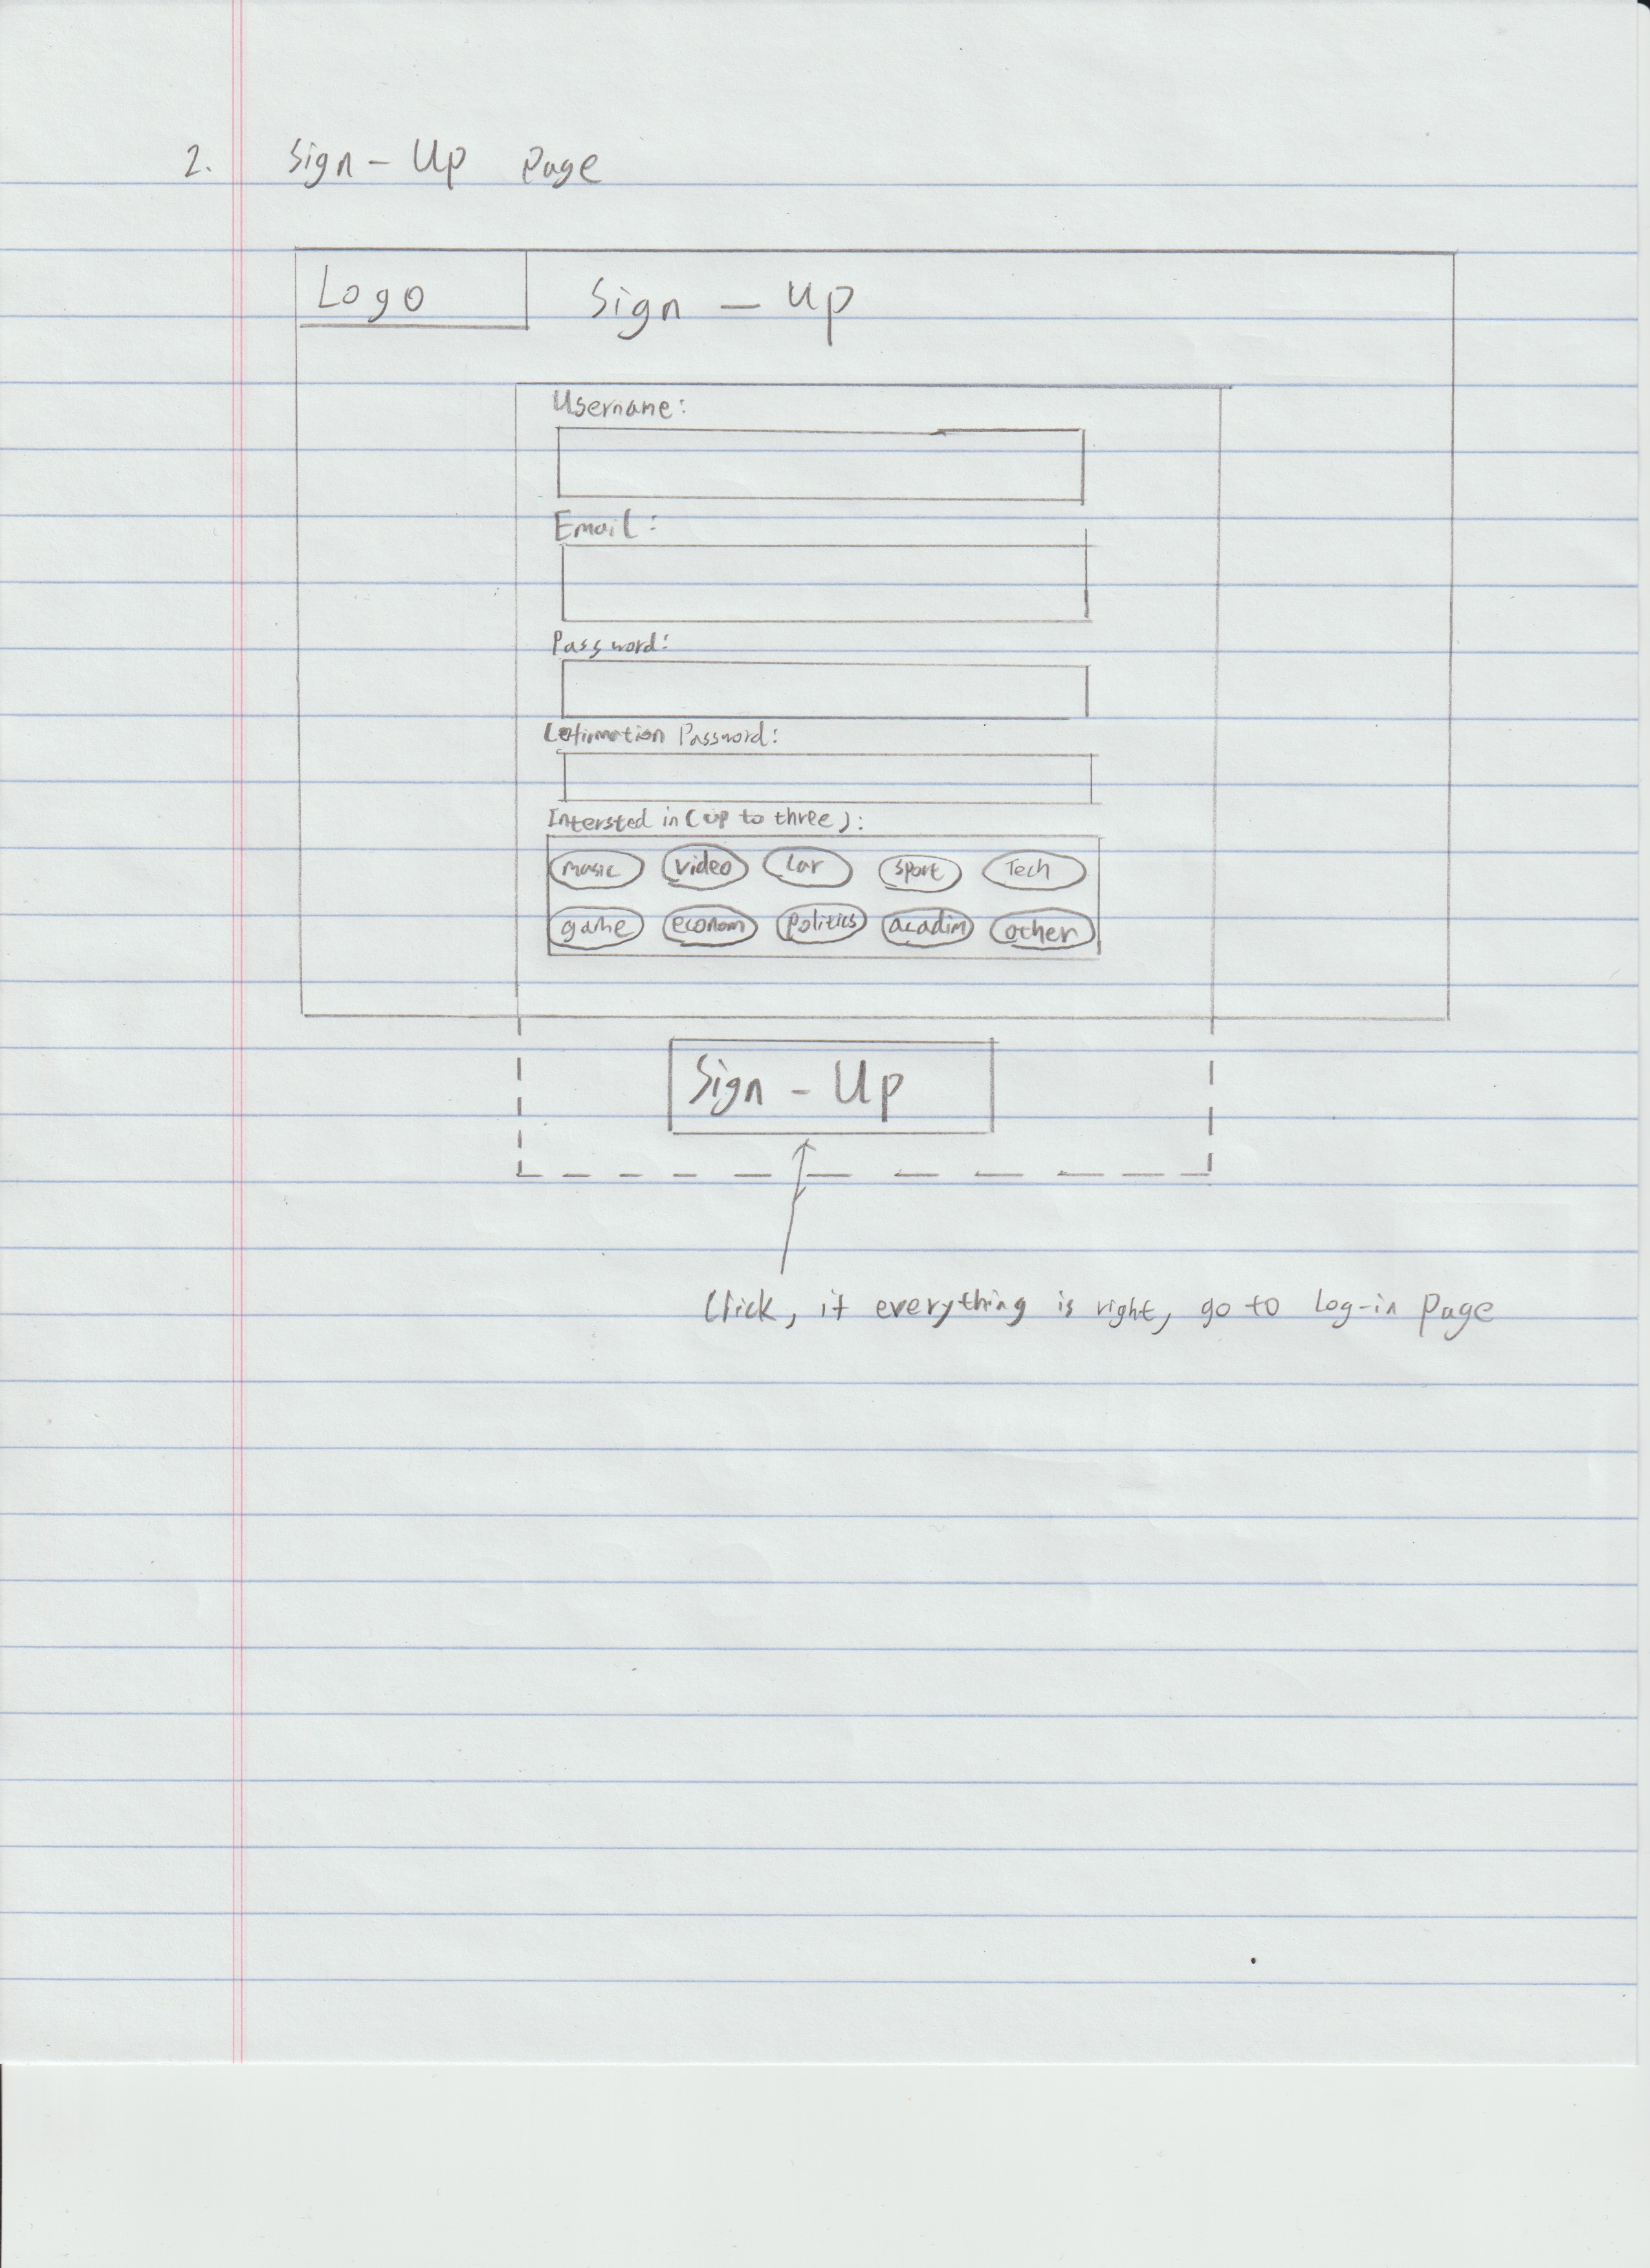 2. Sign-Up Page
Logo Sign-Up
Username:
Email:
Password:
Cofirmation Password:
Intersted in (up to three):
music video Car sport Tech
game econom politics acadim other
Sign-Up
Click, if everything is right, go to Log-in page